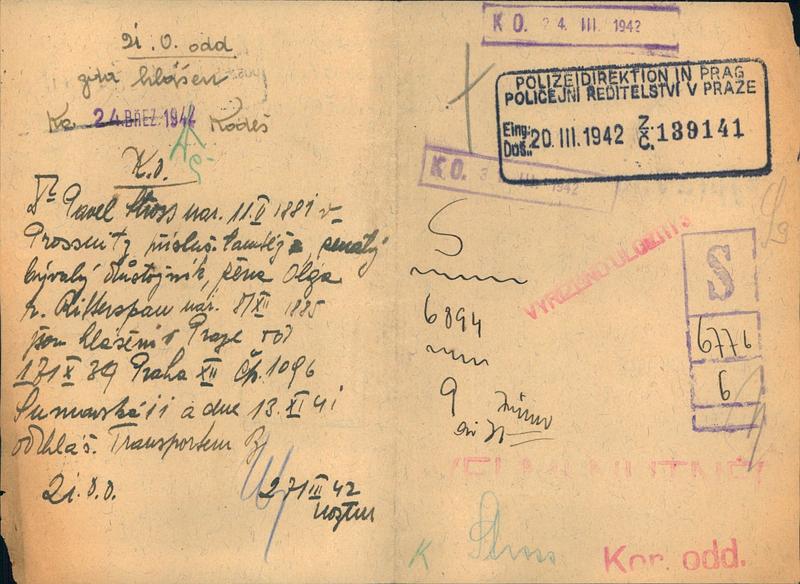 2i. O. odd
žádá hlášen
Ka 24. BŘEZ. 1942 Kodeš
K.O.
Dr Pavel Stross nar. 11.V 1881 v
Prossnitz přísluš. tamtéž, ženatý
bývalý důstojník, žena Olga
r. Ritterspau nar. 8/XII 1885
jsou hlášeni v Praze od
17/X 39 Praha XII čp. 1096
Šumavská 11 a dne 13.XI 41
odhláš. Transportem
2i. O.O.
27/III 42
K.O. 24. III. 1942
POLIZEIDIREKTION IN PRAG
POLICEJNÍ ŘEDITELSTVÍ V PRAZE
Eing.: Doš.: 20. III. 1942 Z. Č. 139141
K.O. III. 1942
S
6894
9
VYŘÍZENO ULOŽITI
S
6776
6
VELMI NUTNÉ!
K Stross
Kor. odd.